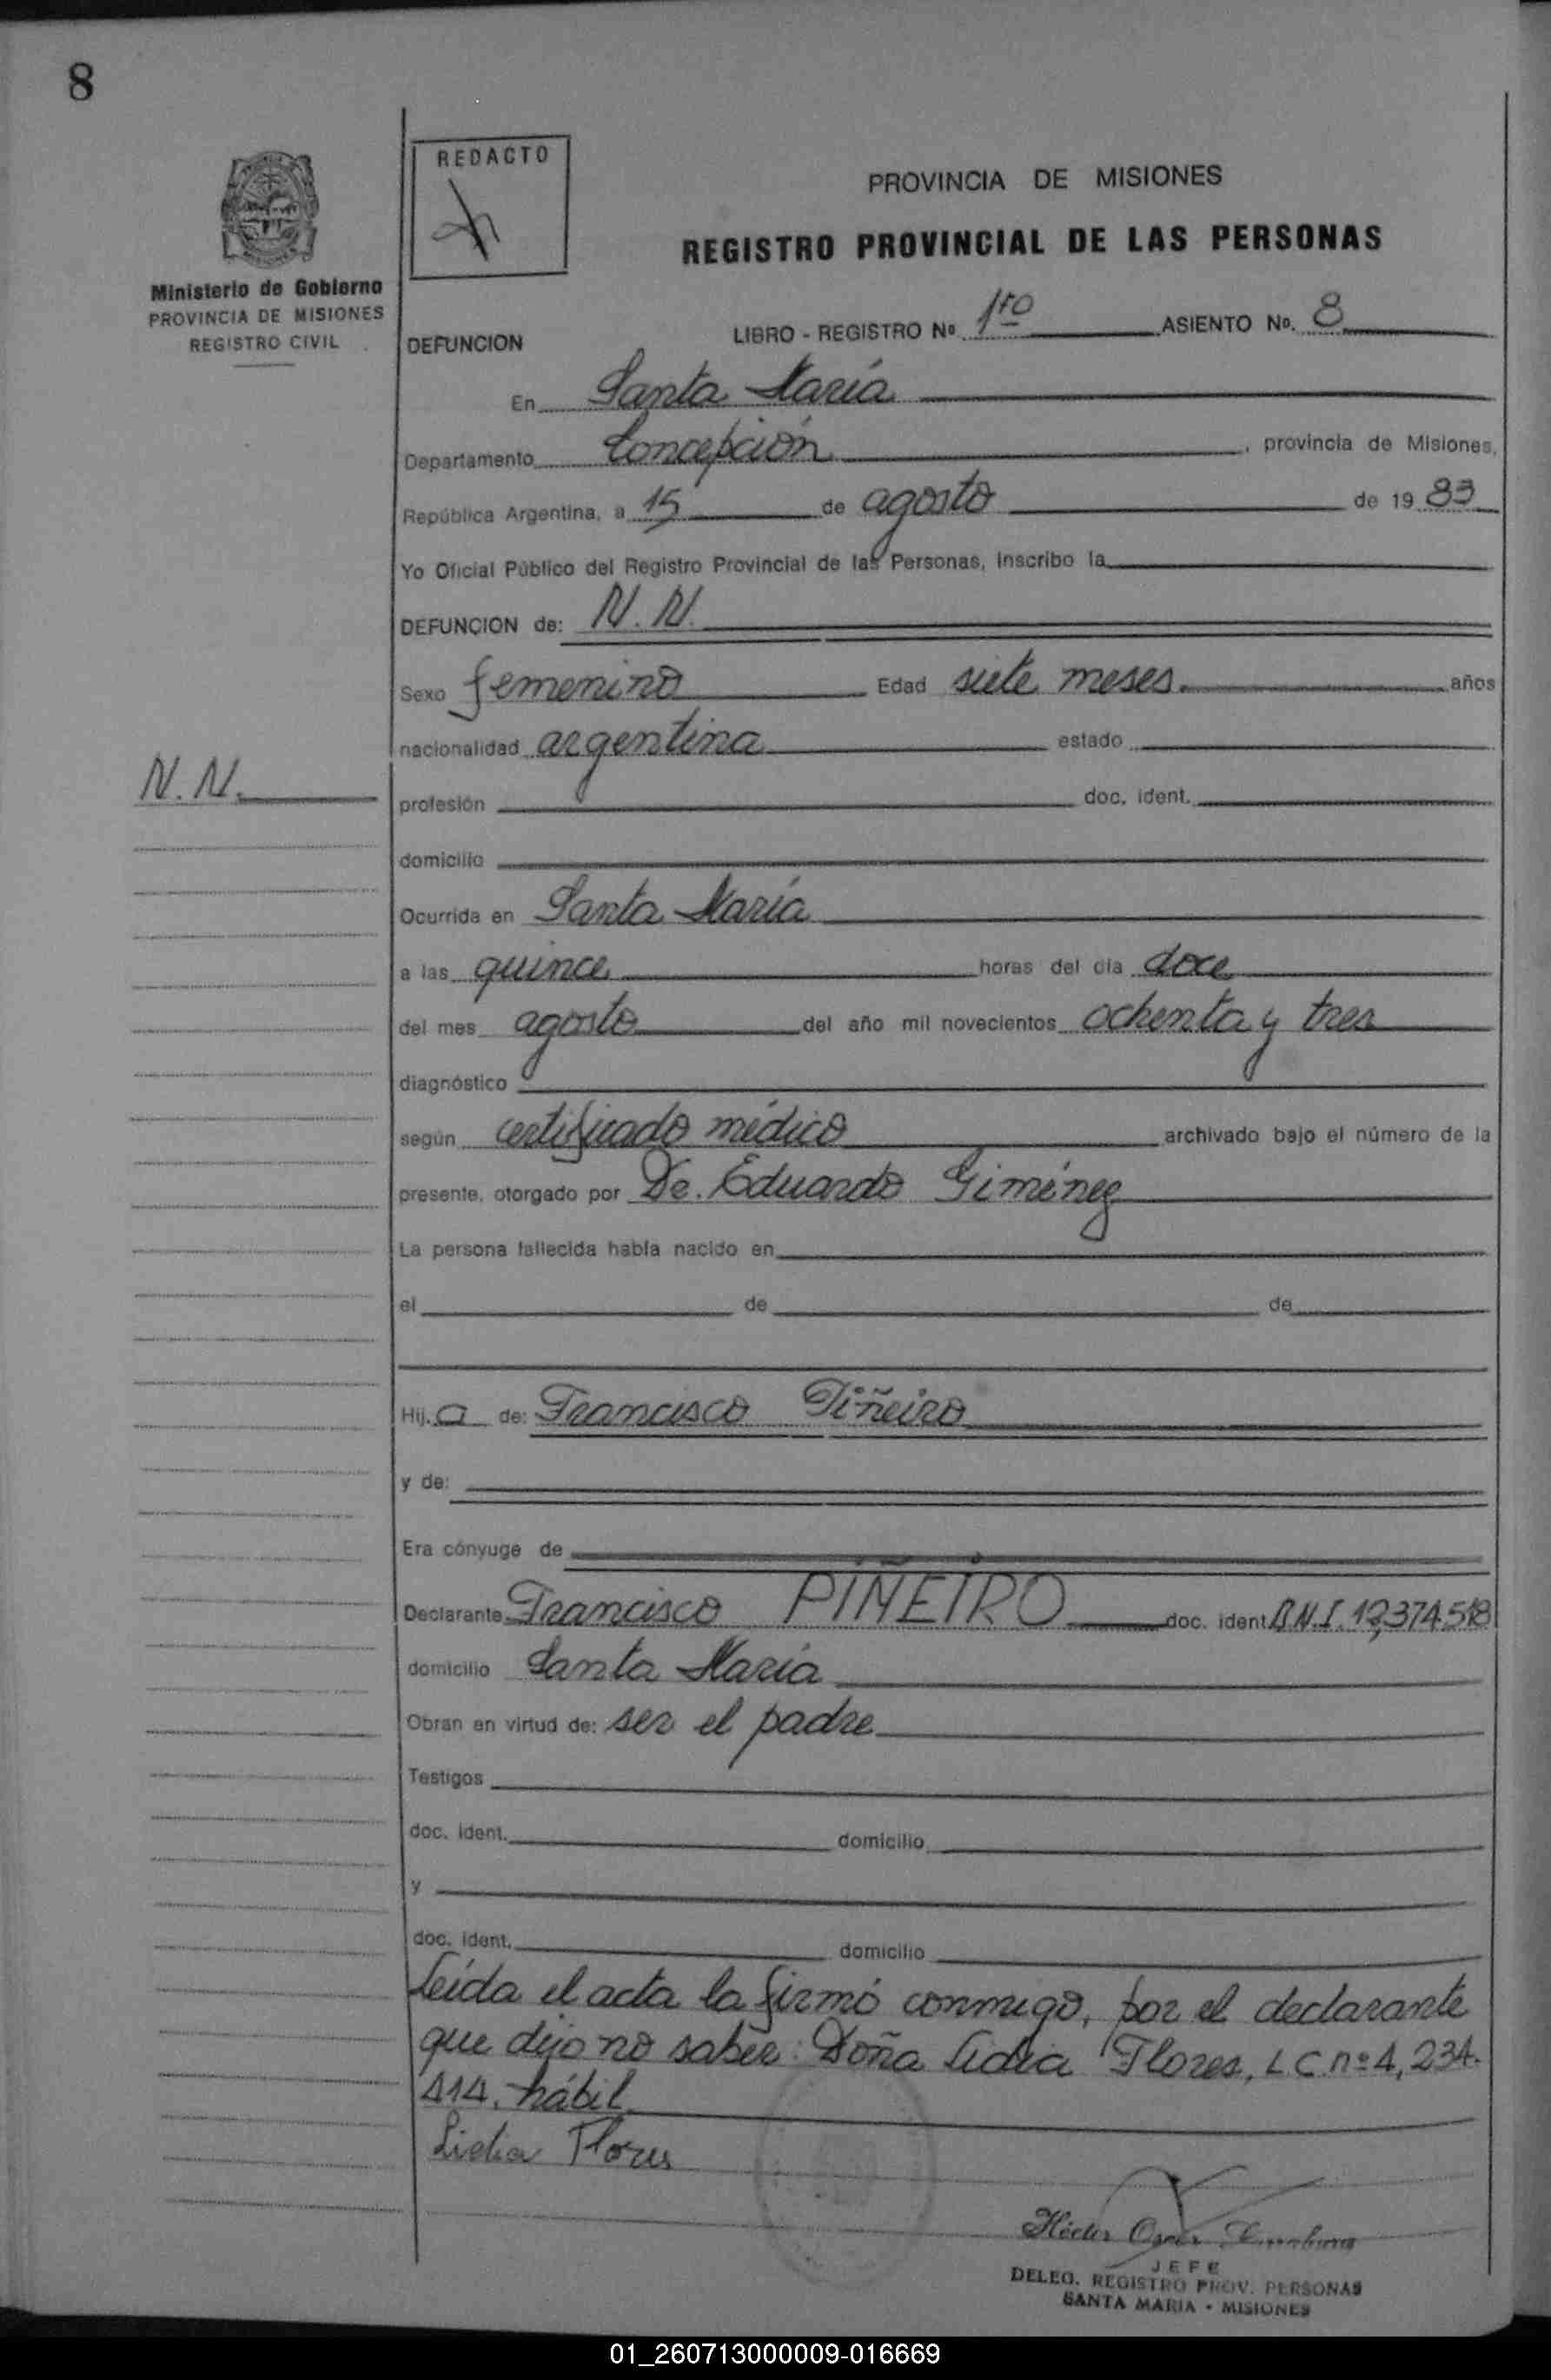 8
REDACTO
PROVINCIA DE MISIONES
REGISTRO PROVINCIAL DE LAS PERSONAS
Ministerio de Gobierno
PROVINCIA DE MISIONES
REGISTRO CIVIL
DEFUNCION LIBRO - REGISTRO Nº 1ro ASIENTO No. 8
En Santa María
Departamento Concepción, provincia de Misiones,
República Argentina, a 15 de agosto de 19 83
Yo Oficial Público del Registro Provincial de las Personas, inscribo la
DEFUNCION de: N. N.
Sexo femenino Edad siete meses. años
nacionalidad argentina estado
N. N.
profesión doc. ident.
domicilio
Ocurrida en Santa María
a las quince horas del día doce
del mes agosto del año mil novecientos ochenta y tres
diagnóstico
según certificado médico archivado bajo el número de la
presente, otorgado por Dr. Eduardo Giménez
La persona fallecida había nacido en
el de de
Hij.a de: Francisco Piñeiro
y de:
Era cónyuge de
Declarante Francisco PIÑEIRO doc. ident. D.N.I. 12,374.518
domicilio Santa María
Obran en virtud de: ser el padre
Testigos
doc. ident. domicilio
y
doc. ident. domicilio
Leída el acta la firmó conmigo, por el declarante
que dijo no saber: Doña Lidia Flores, L C nº 4, 234.
414, hábil
Lidia Flores
Héctor Oscar
JEFE
DELEG. REGISTRO PROV. PERSONAS
SANTA MARIA - MISIONES
01_260713000009-016669